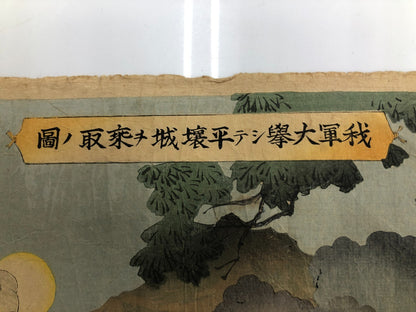 我軍大擧シテ平壤城ヲ乗取ノ圖